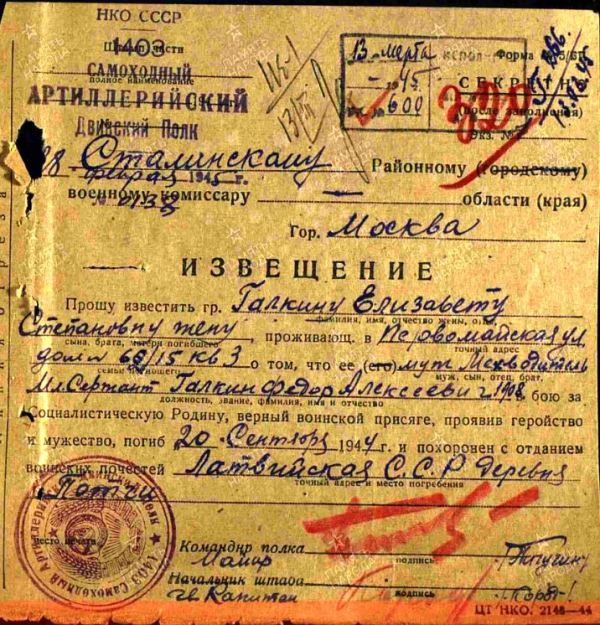 НКО СССР
1403
Штамп части
САМОХОДНЫЙ
полное наименование
АРТИЛЛЕРИЙСКИЙ
Двинский Полк
13 марта
1945 г.
№ 600
Форма
СЕКРЕТНО
(после заполнения)
Экз. №
28 февраля 1945 г.
Сталинскому Районному (городскому)
военному комиссару области (края)
Гор. Москва
ИЗВЕЩЕНИЕ
Прошу известить гр. Галкину Елизавету
фамилия, имя, отчество жены, отца,
Степановну жену, проживающ. в Первомайская ул.
сына, брата, матери погибшего
точный адрес
дом № 68/15 кв 3 о том, что ее (его) муж Мехводитель
муж, сын, отец, брат,
Мл Сержант Галкин Федор Алексеевич 1908 в бою за
должность, звание, фамилия, имя и отчество
Социалистическую Родину, верный воинской присяге, проявив геройство
и мужество, погиб 20 Сентября 1944 и похоронен с отданием
воинских почестей Латвийская С.С.Р деревня
точный адрес и место погребения
место печати
1403 Самоходный Артиллерийский Двинский полк
Командир полка
подпись
Майор
Начальник штаба
подпись
гв. Капитан
ЦТ НКО. 2148—44